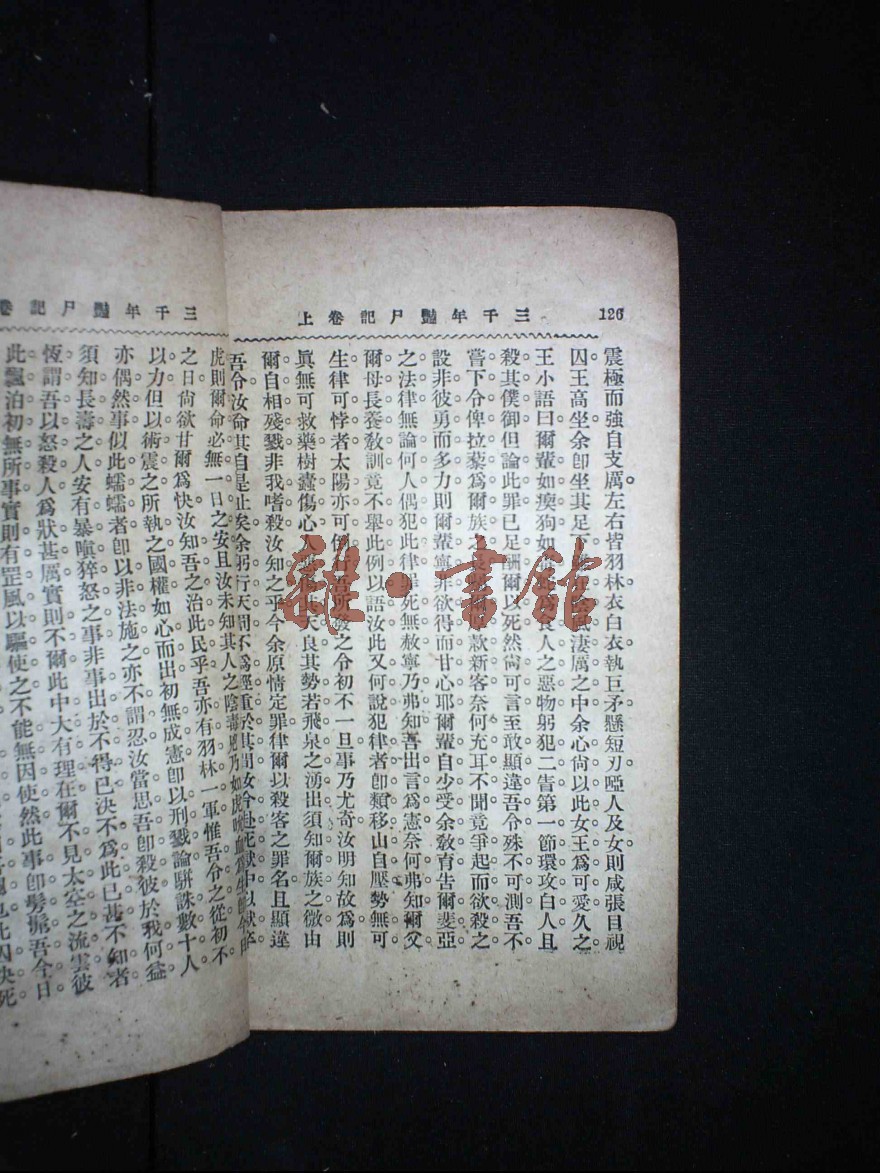 126
三千年艷尸記卷上
震極而強自支厲左右皆羽林衣白衣執巨矛懸短刃啞人及女則咸張目視
囚王高坐余卽坐其足下淒厲之中余心尙以此女王爲可愛久之
王小語曰爾輩如瘈狗如食人之惡物躬犯二眚第一節環攻白人且
殺其僕御但論此罪已足酬爾以死然尙可言至敢顯違吾令殊不可測吾不
嘗下令俾拉藜爲爾族之長款新客奈何充耳不聞竟爭起而欲殺之
設非彼勇而多力則爾輩寧非欲得而甘心耶爾輩自少受余敎育吿爾斐亞
之法律無論何人偶犯此律罪死無赦寧乃弗知吾出言爲憲奈何弗知爾父
爾母長養敎訓竟不舉此例以語汝此又何說犯律者卽類移山自壓勢無可
生律可悖者太陽亦可倒行吾所敎之令初不一旦事乃尤奇汝明知故爲則
眞無可救藥樹蠹傷心人天良其勢若飛泉之湧出須知爾族之微由
爾自相殘戮非我嗜殺汝知之乎今余原情定罪律爾以殺客之罪名且顯違
吾令汝命其自是止矣余躬行天罰不爲輕重於其間汝今赴死獄中以俟
三千年艷尸記卷
虎則爾命必無一日之安且汝未知其人之陰毒
之日尙欲甘爾爲快汝知吾之治此民乎吾亦有羽林一軍惟吾令之從初不
以力但以術震之所執之國權如心而出初無成憲卽以刑戮論駢誅數十人
亦偶然事似此蠕蠕者卽以非法施之亦不謂忍汝當思吾卽殺彼於我何益
須知長壽之人安有暴嗔猝怒之事非事出於不得已決不爲此已甚不知者
恆謂吾以怒殺人爲狀甚厲實則不爾此中大有理在爾不見太空之流雲彼
此飄泊初無所事實則有罡風以驅使之不能無因使然此事卽髣髴吾今日